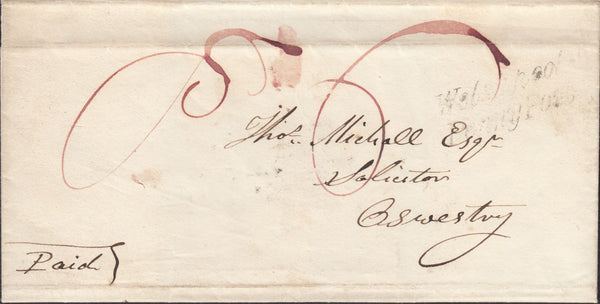 P 6
Welshpool
Penny Post
Thos. Michall Esqr
Solicitor
Oswestry
Paid